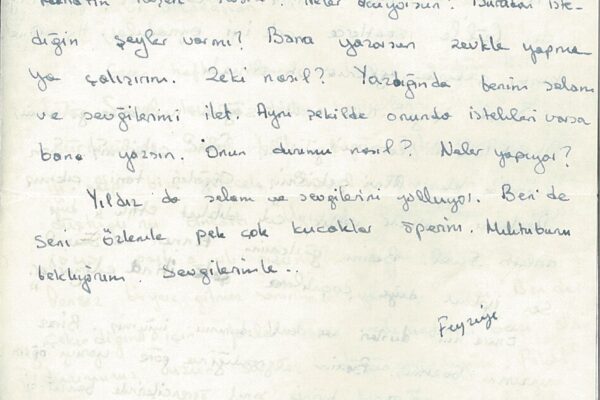 nasıl? Neler okuyorsun? Buradan iste-
diğin şeyler varmı? Bana yazarsan zevkle yapma
ya çalışırım. Zeki nasıl? Yazdığında benim selam
ve sevgilerimi ilet. Aynı şekilde onunda istekleri varsa
bana yazsın. Onun durumu nasıl? Neler yapıyor?
Yıldız da selam ve sevgilerini yolluyor. Ben de
seni özlemle pek çok kucaklar öperim. Mektubunu
bekliyorum. Sevgilerimle...
Feyziye